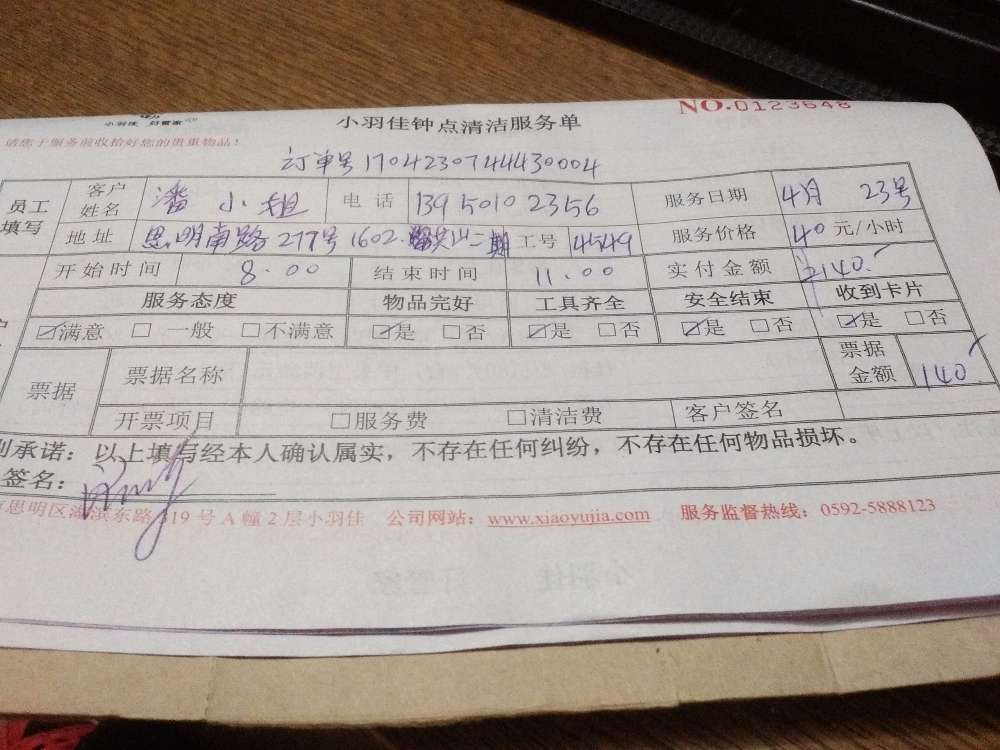 小羽佳 好管家
NO.0123648
请您于服务前收拾好您的贵重物品！
小羽佳钟点清洁服务单
订单号 17042307444430004
员工填写 客户姓名 潘小姐 电话 139 5010 2356 服务日期 4月 23号
地址 思明南路277号1602 二期 工号 4549 服务价格 40 元/小时
开始时间 8.00 结束时间 11.00 实付金额 140
服务态度 物品完好 工具齐全 安全结束 收到卡片
☑满意 □一般 □不满意 ☑是 □否 ☑是 □否 ☑是 □否 ☑是 □否
票据 票据名称 票据金额 140
开票项目 □服务费 □清洁费 客户签名
承诺：以上填写经本人确认属实，不存在任何纠纷，不存在任何物品损坏。
签名：
思明区湖滨东路319号A幢2层小羽佳 公司网站：www.xiaoyujia.com 服务监督热线：0592-5888123